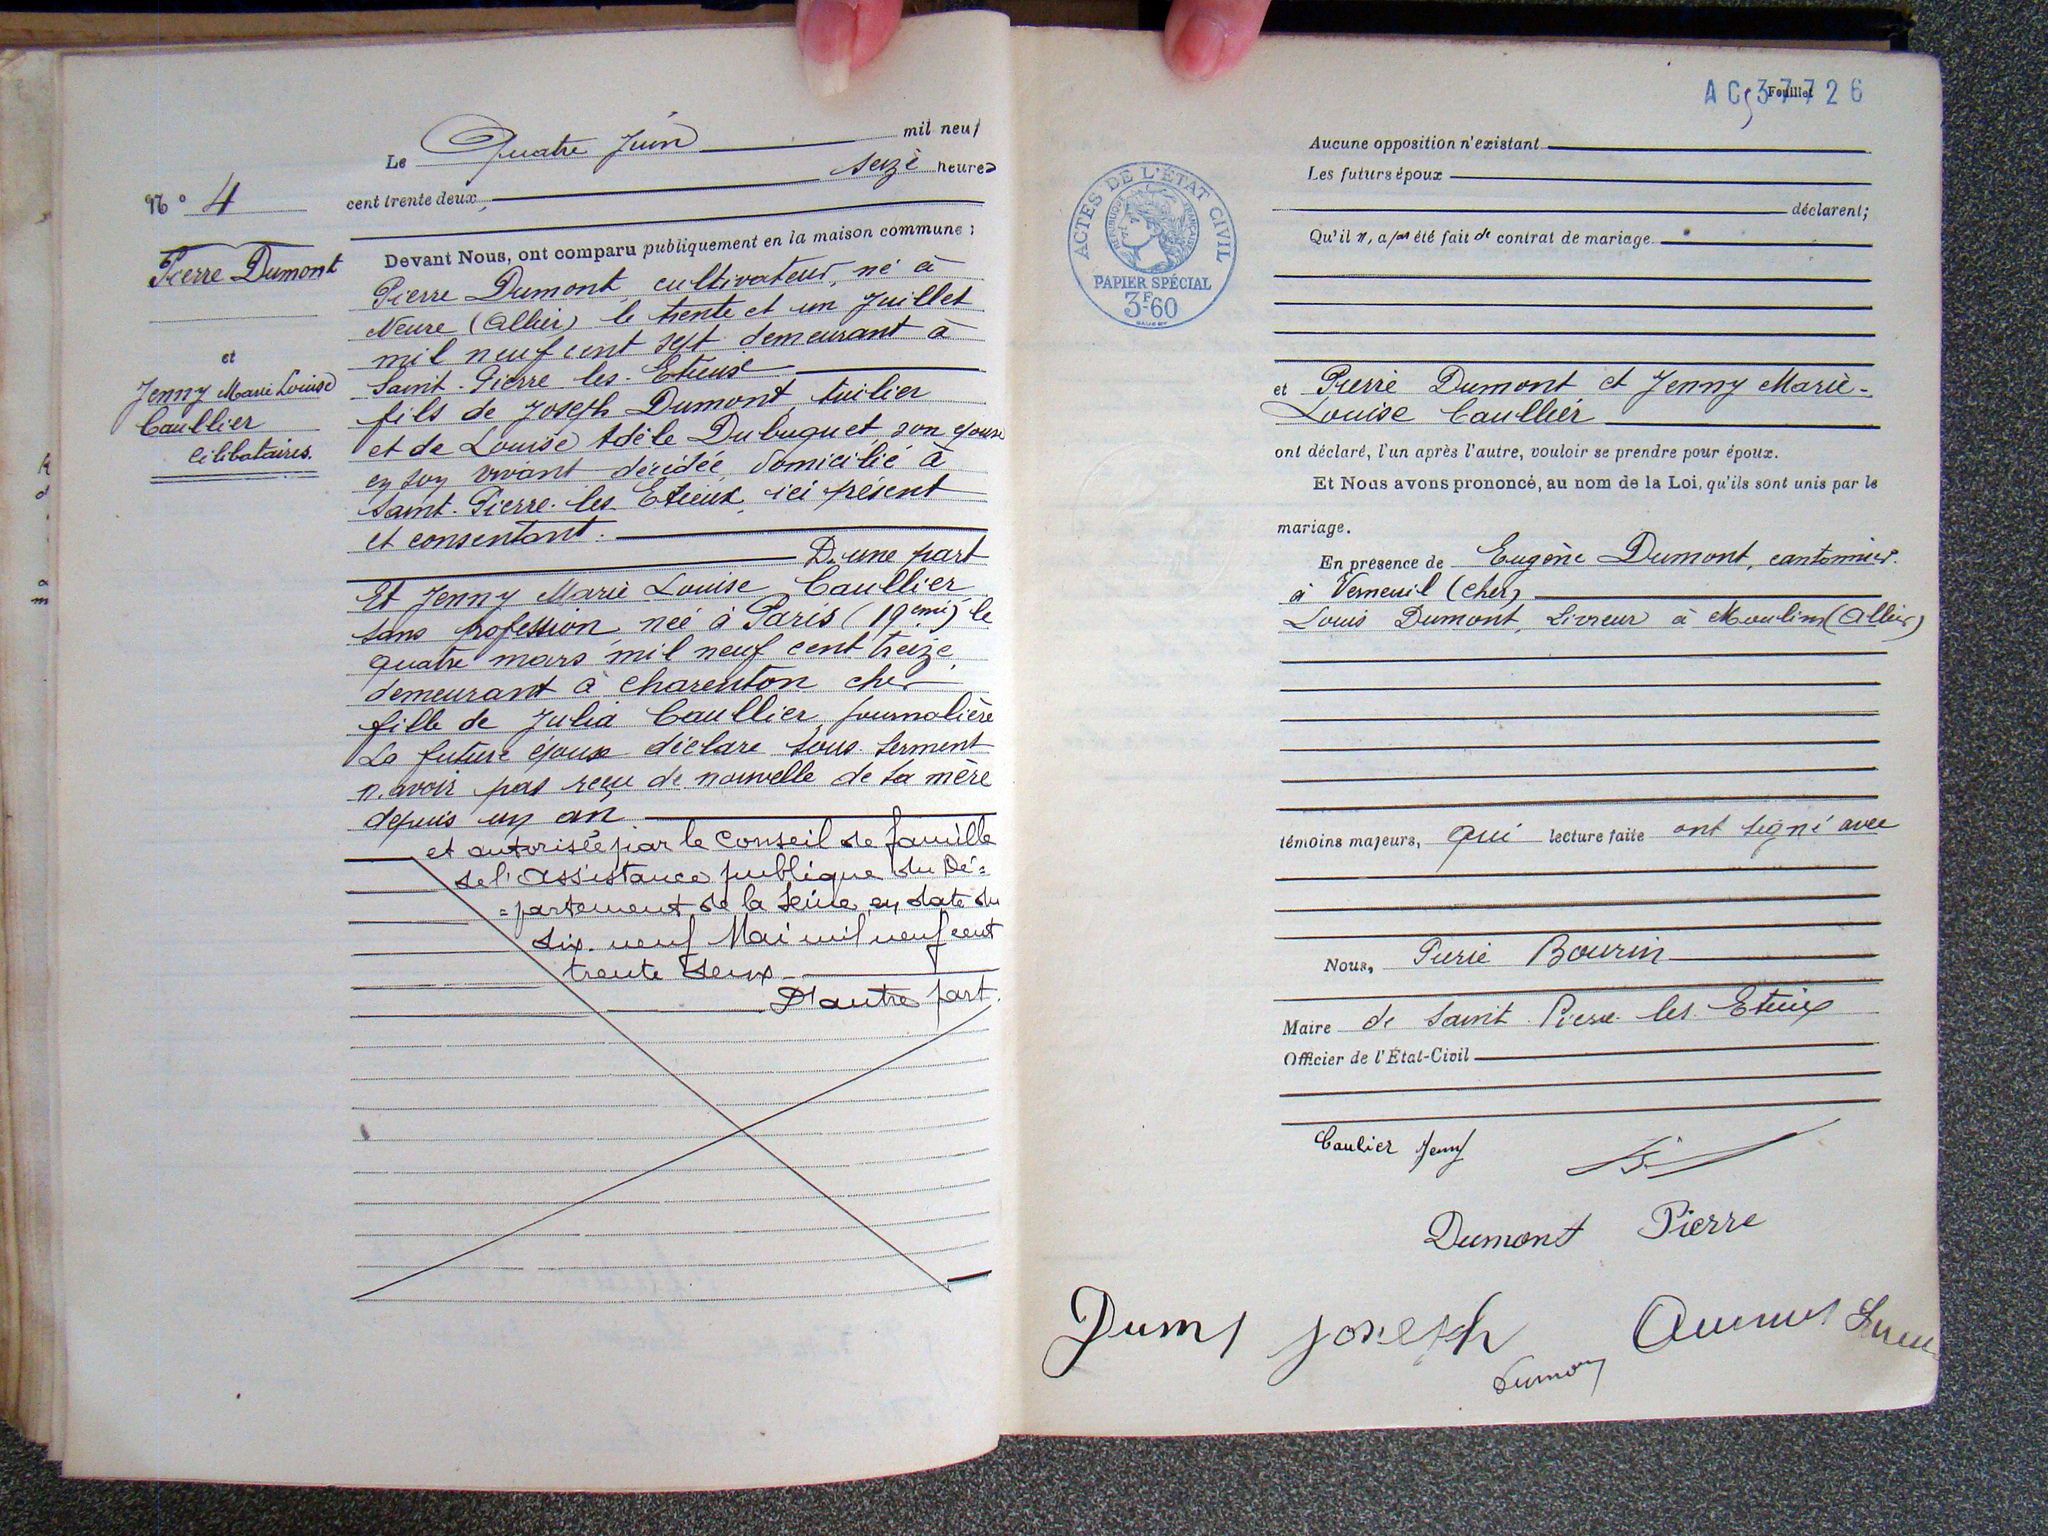 N° 4
Pierre Dumont
et
Jenny Marie Louise
Caullier
célibataires.
Le Quatre Juin mil neuf
cent trente deux, seize heures
Devant Nous, ont comparu publiquement en la maison commune :
Pierre Dumont, cultivateur, né à
Neure (Allier) le trente et un Juillet
mil neuf cent sept demeurant à
Saint-Pierre les-Etieux
fils de Joseph Dumont, tuilier
et de Louise Adèle Dubuguet son épouse
en son vivant décédée, domicilié à
Saint-Pierre-les-Etieux, ici présent
et consentant.
D'une part
Et Jenny Marie Louise Caullier
sans profession née à Paris (19eme) le
quatre mars mil neuf cent treize
demeurant à Charenton cher
fille de Julia Caullier journalière
La future épouse déclare sous serment
n'avoir pas reçu de nouvelle de sa mère
depuis un an
et autorisée par le Conseil de famille
de l'Assistance publique du Dé-
=partement de la Seine, en date du
dix-neuf Mai mil neuf cent
trente deux
D'autre part.
AC 37726
Feuillet
ACTES DE L'ÉTAT CIVIL
RÉPUBLIQUE FRANÇAISE
PAPIER SPÉCIAL
3F-60
Aucune opposition n'existant
Les futurs époux
déclarent;
Qu'il n'a pas été fait de contrat de mariage.
et Pierre Dumont et Jenny Marie-
Louise Caullier
ont déclaré, l'un après l'autre, vouloir se prendre pour époux.
Et Nous avons prononcé, au nom de la Loi, qu'ils sont unis par le
mariage.
En présence de Eugène Dumont, cantonnier
à Verneuil (Cher)
Louis Dumont, Livreur à Moulins (Allier)
témoins majeurs, qui lecture faite ont signé avec
Nous, Pierre Bourin
Maire de Saint-Pierre-les-Etieux
Officier de l'État-Civil
Caulier Jenny
Dumont Pierre
Dumont Joseph
Dumont